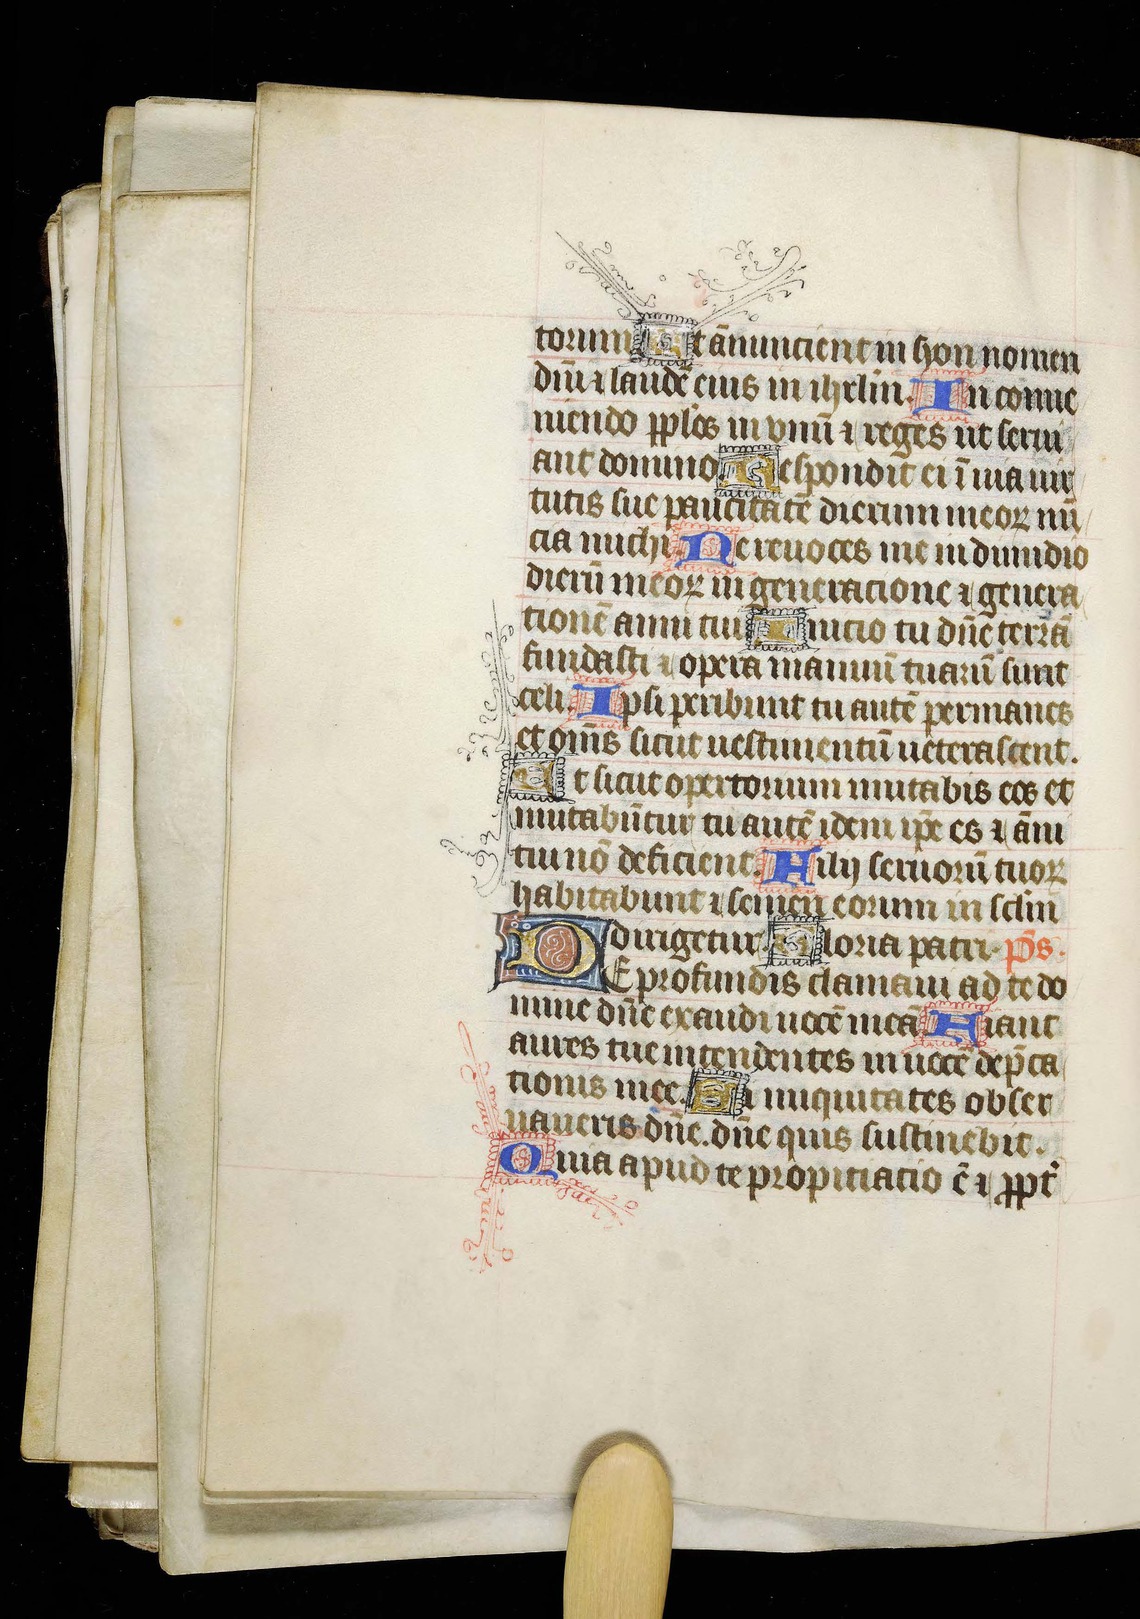 torum Et ānuncient in syon nomen
dn̄i ⁊ laudē eius in ihrlm̄. In conue
niendo pp̄los in vnū ⁊ reges ut serui
ant domino Respondit ei ī uia uir
tutis sue paucitatē dierum meoꝝ nū
cia michi Ne reuoces me in dimidio
dierū meoꝝ in generacione ⁊ genera
tionē anni tui Inicio tu dn̄e terrā
fundasti ⁊ opera manuū tuarū sunt
celi. Ipsi peribunt tu autē permanes
et om̄s sicut uestimentū ueterascent.
Et sicut opertorium mutabis eos et
mutabūtur tu autē idem ip̄e es ⁊ āni
tui nō deficient. Filij seruorū tuoꝝ
habitabunt ⁊ semen eorum in sclm̄
dirigetur Gloria patri. p̄s.
DE profundis clamaui ad te do
mine dn̄e exaudi uocē meā Fiant
aures tue intendentes in uocē dep̄ca
tionis mee. Si iniquitates obser
uaueris dn̄e. dn̄e quis sustinebit.
Quia apud te propitiatio ē ⁊ ꝓpt̄